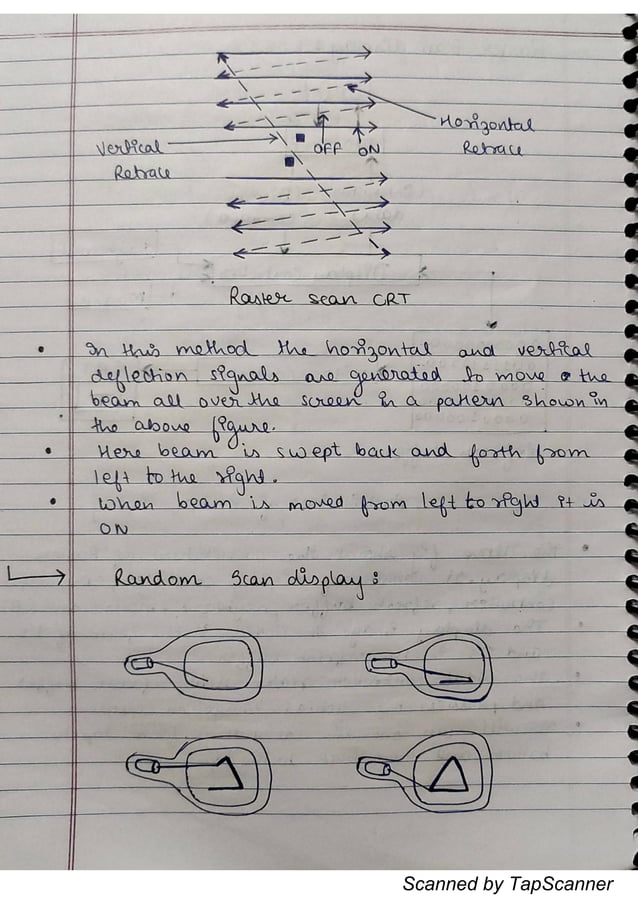 Horizontal
Retrace
Vertical
Retrace
OFF ON
Raster scan CRT
• In this method the horizontal and vertical
deflection signals are generated to move the
beam all over the screen in a pattern shown in
the above figure.
• Here beam is swept back and forth from
left to the right.
• When beam is moved from left to right it is
ON
Random Scan display:
Scanned by TapScanner